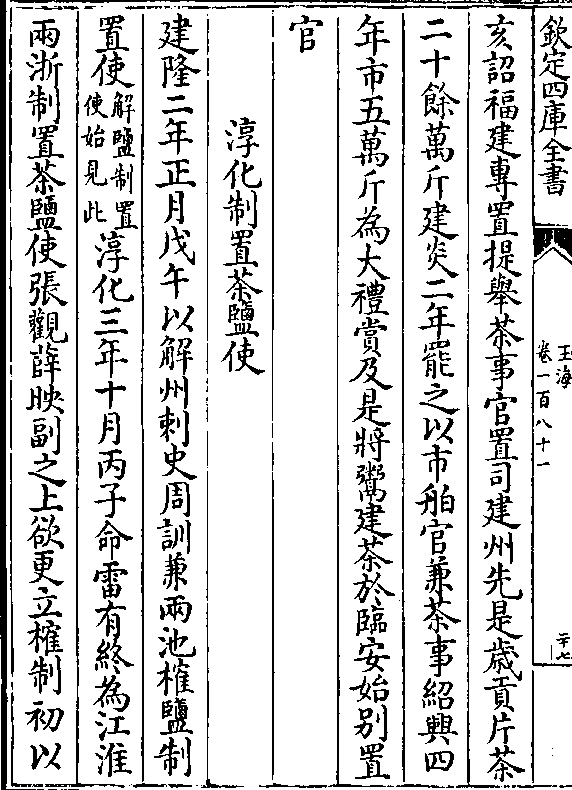 欽定四庫全書
玉海
卷一百八十一
二十七
亥詔福建専置提舉茶事官置司建州先是歲貢片茶
二十餘萬斤建炎二年罷之以市舶官兼茶事紹興四
年市五萬斤為大禮賞及是將鬻建茶於臨安始别置
官
淳化制置茶鹽使
建隆二年正月戊午以解州刺史周訓兼兩池榷鹽制
置使解鹽制置使始見此淳化三年十月丙子命雷有終為江淮
兩浙制置茶鹽使張觀薛映副之上欲更立榷制初以